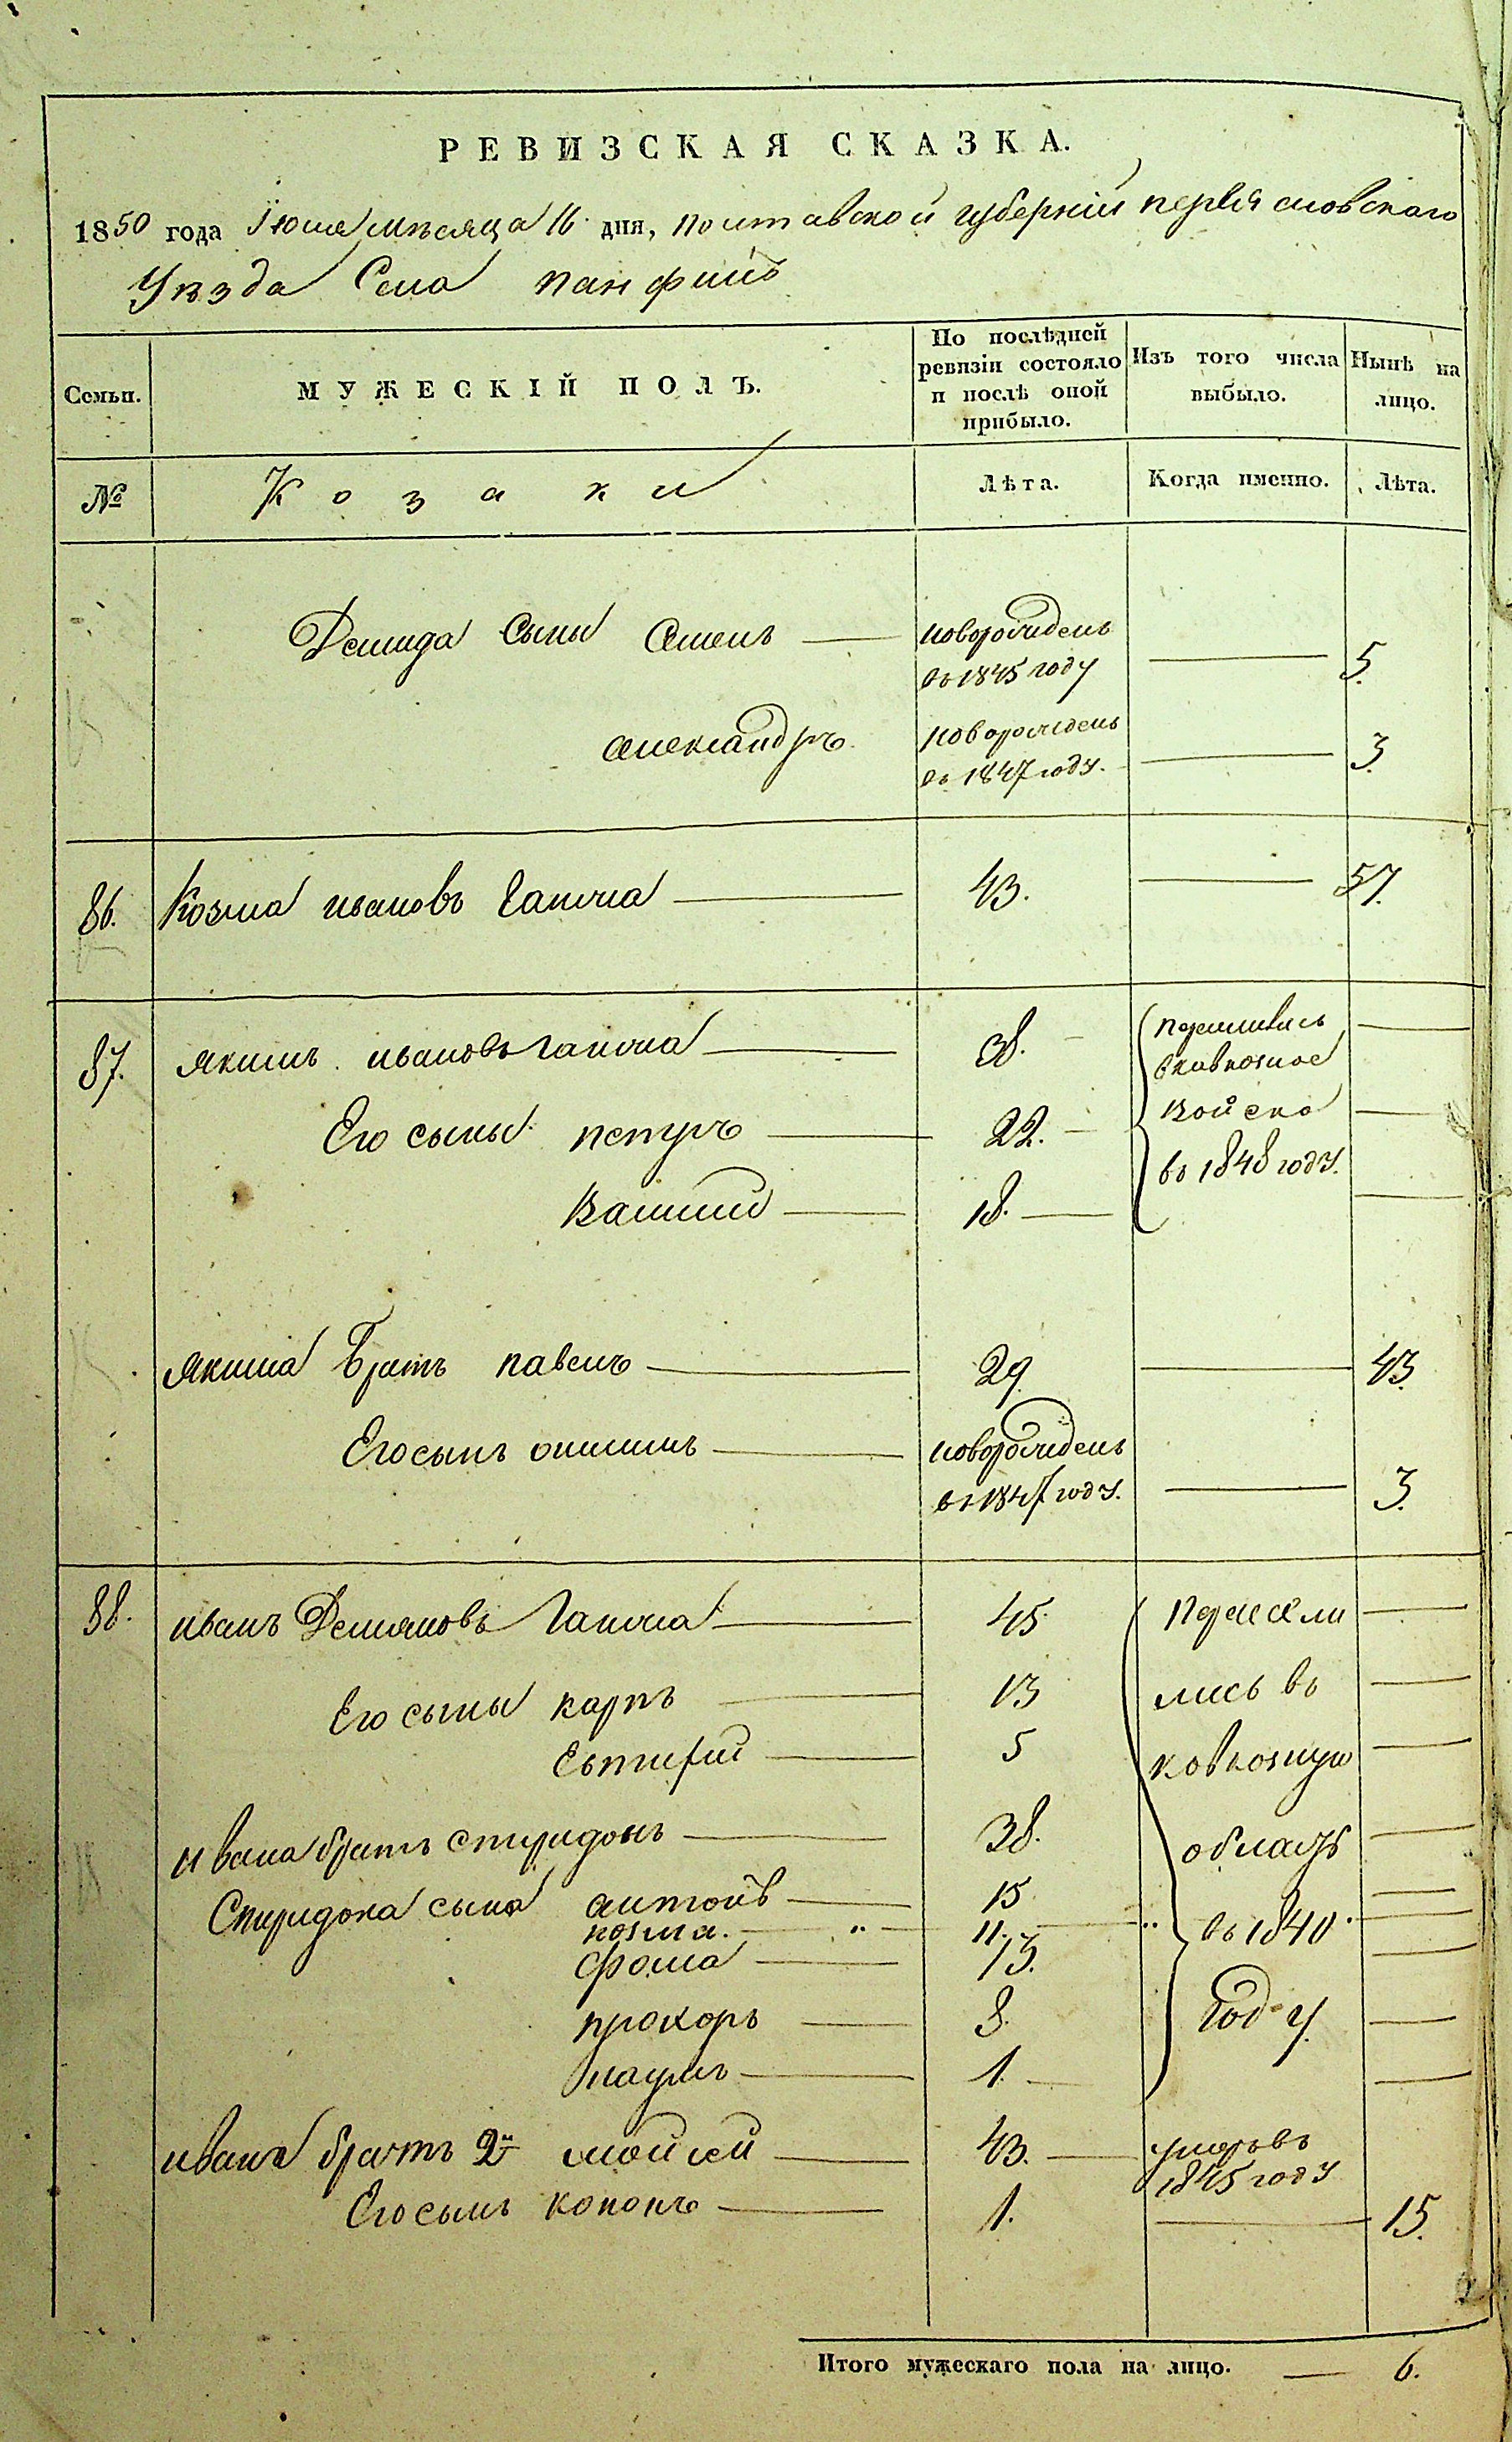 РЕВИЗСКАЯ СКАЗКА.
1850 года Июня мѣсяца 16 дня, полтавской губерніи переяславскаго
Уѣзда Села панфилъ
Семьи. МУЖЕСКІЙ ПОЛЪ. По послѣдней ревизіи состояло и послѣ оной прибыло. Изъ того числа выбыло. Нынѣ на лицо.
№ Козаки Лѣта. Когда именно. Лѣта.
Демида сыны Семенъ новорожденъ въ 1845 году 5.
александръ новорожденъ въ 1847 году. 3.
86. Козма ивановъ Гапочка 43. 57.
87. якимъ ивановъ гапочка 38. переселились
в кавказное
Его сыны петръ 22. войско
въ 1848 году.
Василий 18.
якима братъ павелъ 29. 43.
Его сынъ онисимъ новорожденъ
въ 1847 году. 3.
88. иванъ Демяновъ Гапочка 45. пересели
Его сыны карпъ 13 лись въ
Евтифій 5 ковкозкую
ивана братъ спиридонъ 38. область
Спиридона сыны антонъ 15
козма. " 11. " въ 1840.
фома 13.
прохоръ 8. году.
наумъ 1.
ивана братъ 2й мойсей 43. умеръ въ
1845 году
Его сынъ кононъ 1. 15.
Итого мужескаго пола на лицо. 6.